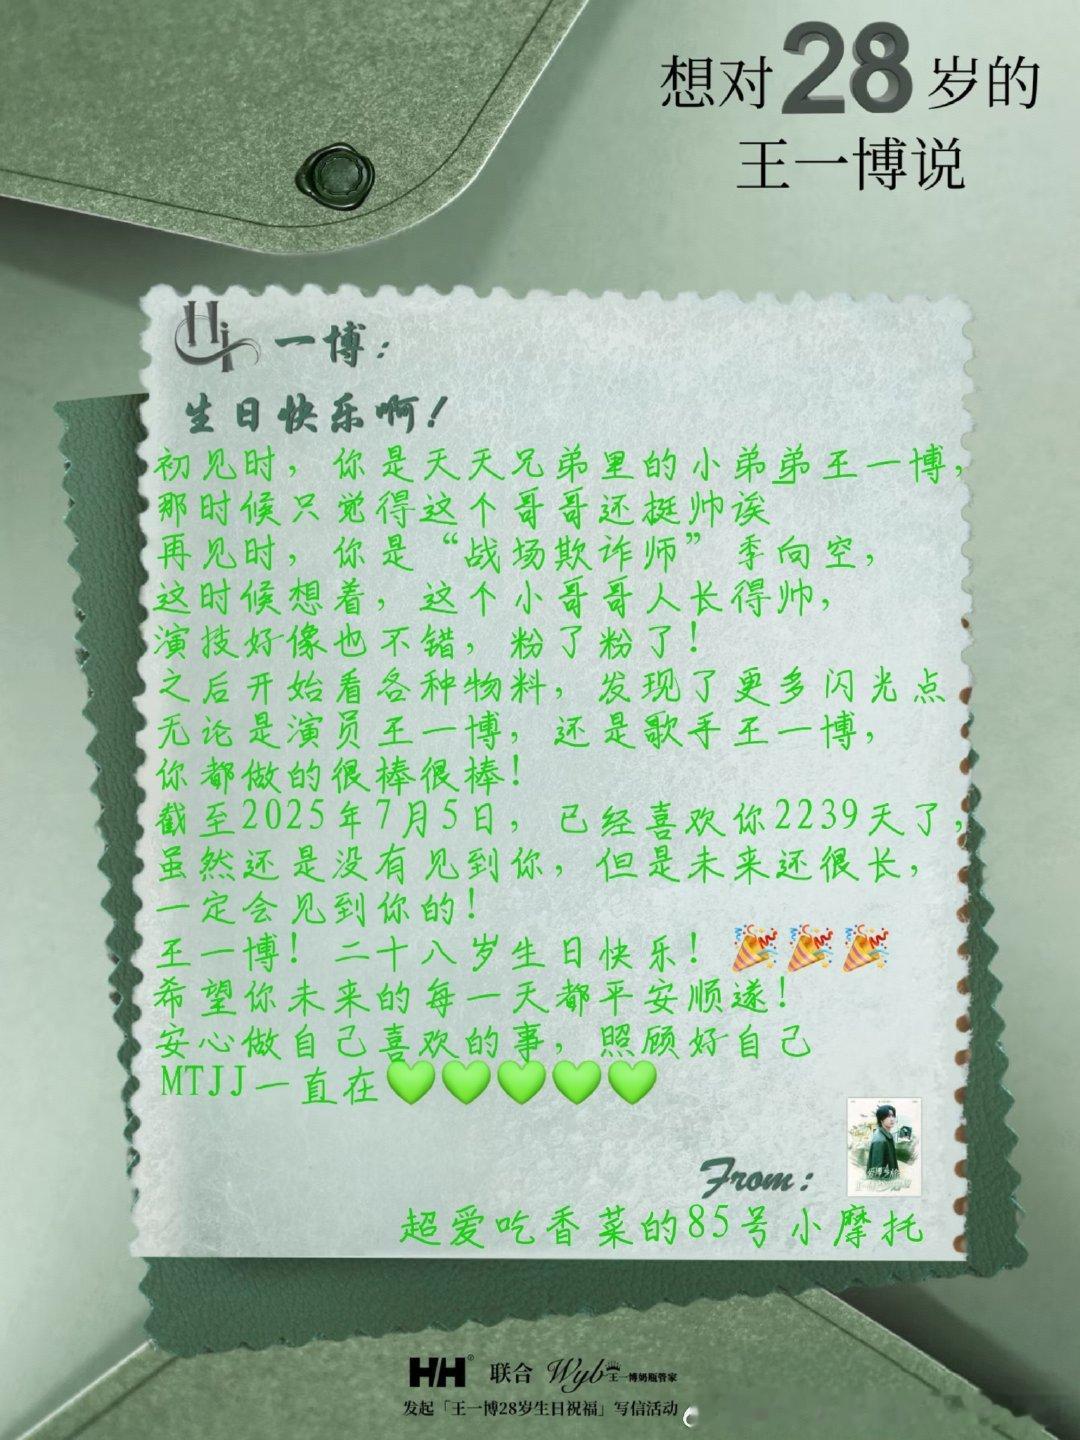 想对28岁的
王一博说
Hi 一博：
生日快乐啊！
初见时，你是天天兄弟里的小弟弟王一博，
那时候只觉得这个哥哥还挺帅诶
再见时，你是“战场欺诈师”季向空，
这时候想着，这个小哥哥人长得帅，
演技好像也不错，粉了粉了！
之后开始看各种物料，发现了更多闪光点
无论是演员王一博，还是歌手王一博，
你都做的很棒很棒！
截至2025年7月5日，已经喜欢你2239天了，
虽然还是没有见到你，但是未来还很长，
一定会见到你的！
王一博！二十八岁生日快乐！🎉🎉🎉
希望你未来的每一天都平安顺遂！
安心做自己喜欢的事，照顾好自己
MTJJ一直在💚💚💚💚💚
From：
超爱吃香菜的85号小摩托
HH® 联合 Wyb王一博奶瓶管家
发起「王一博28岁生日祝福」写信活动